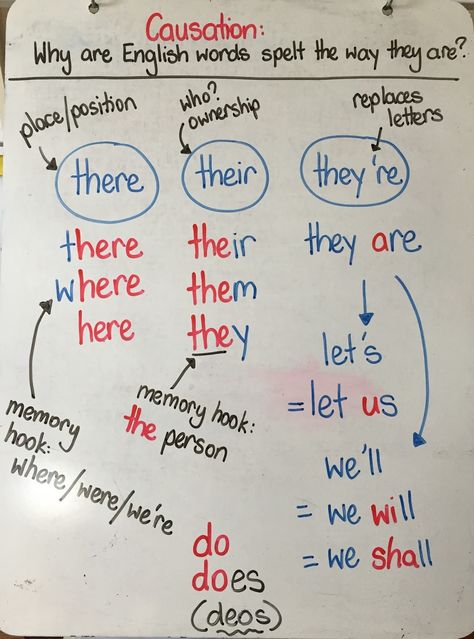 Causation:
Why are English words spelt the way they are?
place/position
there
there
where
here
memory
hook:
where/were/we're
who?
ownership
their
their
them
they
memory hook:
the person
do
does
(deos)
replaces
letters
they're
they are
let's
= let us
we'll
= we will
= we shall